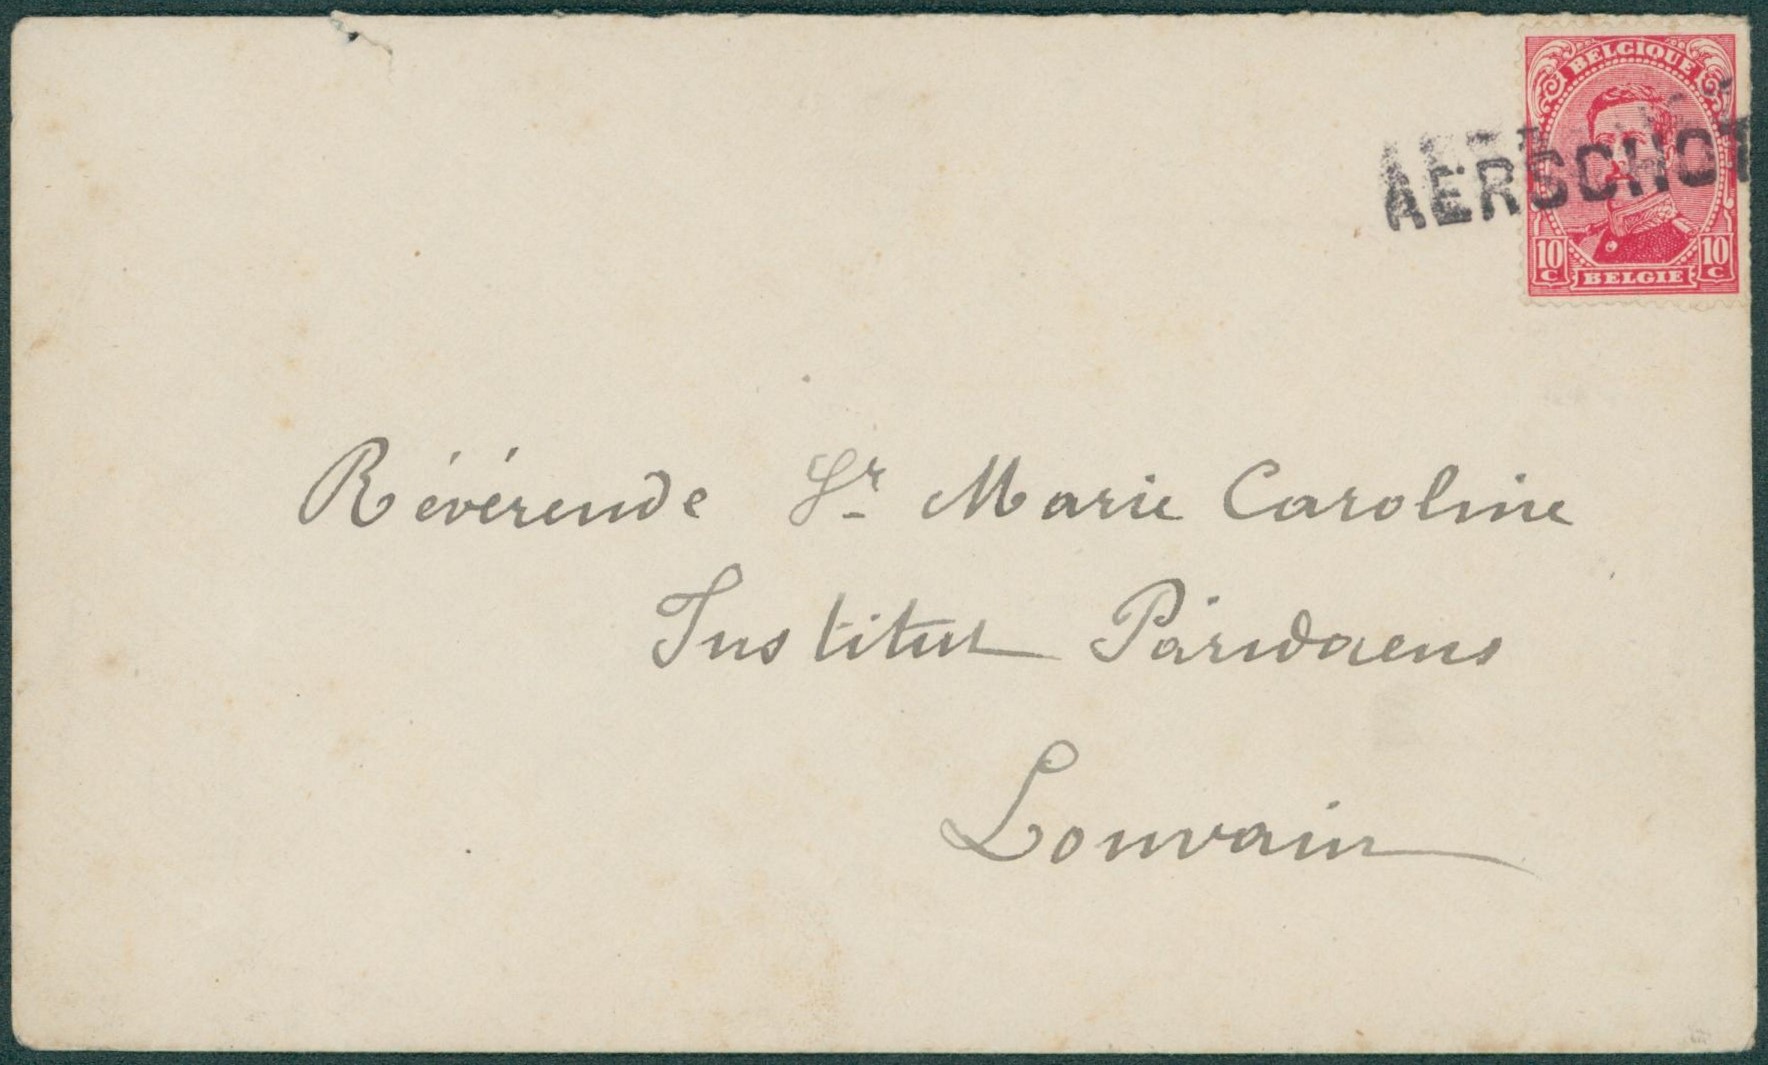 BELGIQUE
AERSCHOT
10 C BELGIE 10 C
Révérende Sr Marie Caroline
Institut Paridaens
Louvain